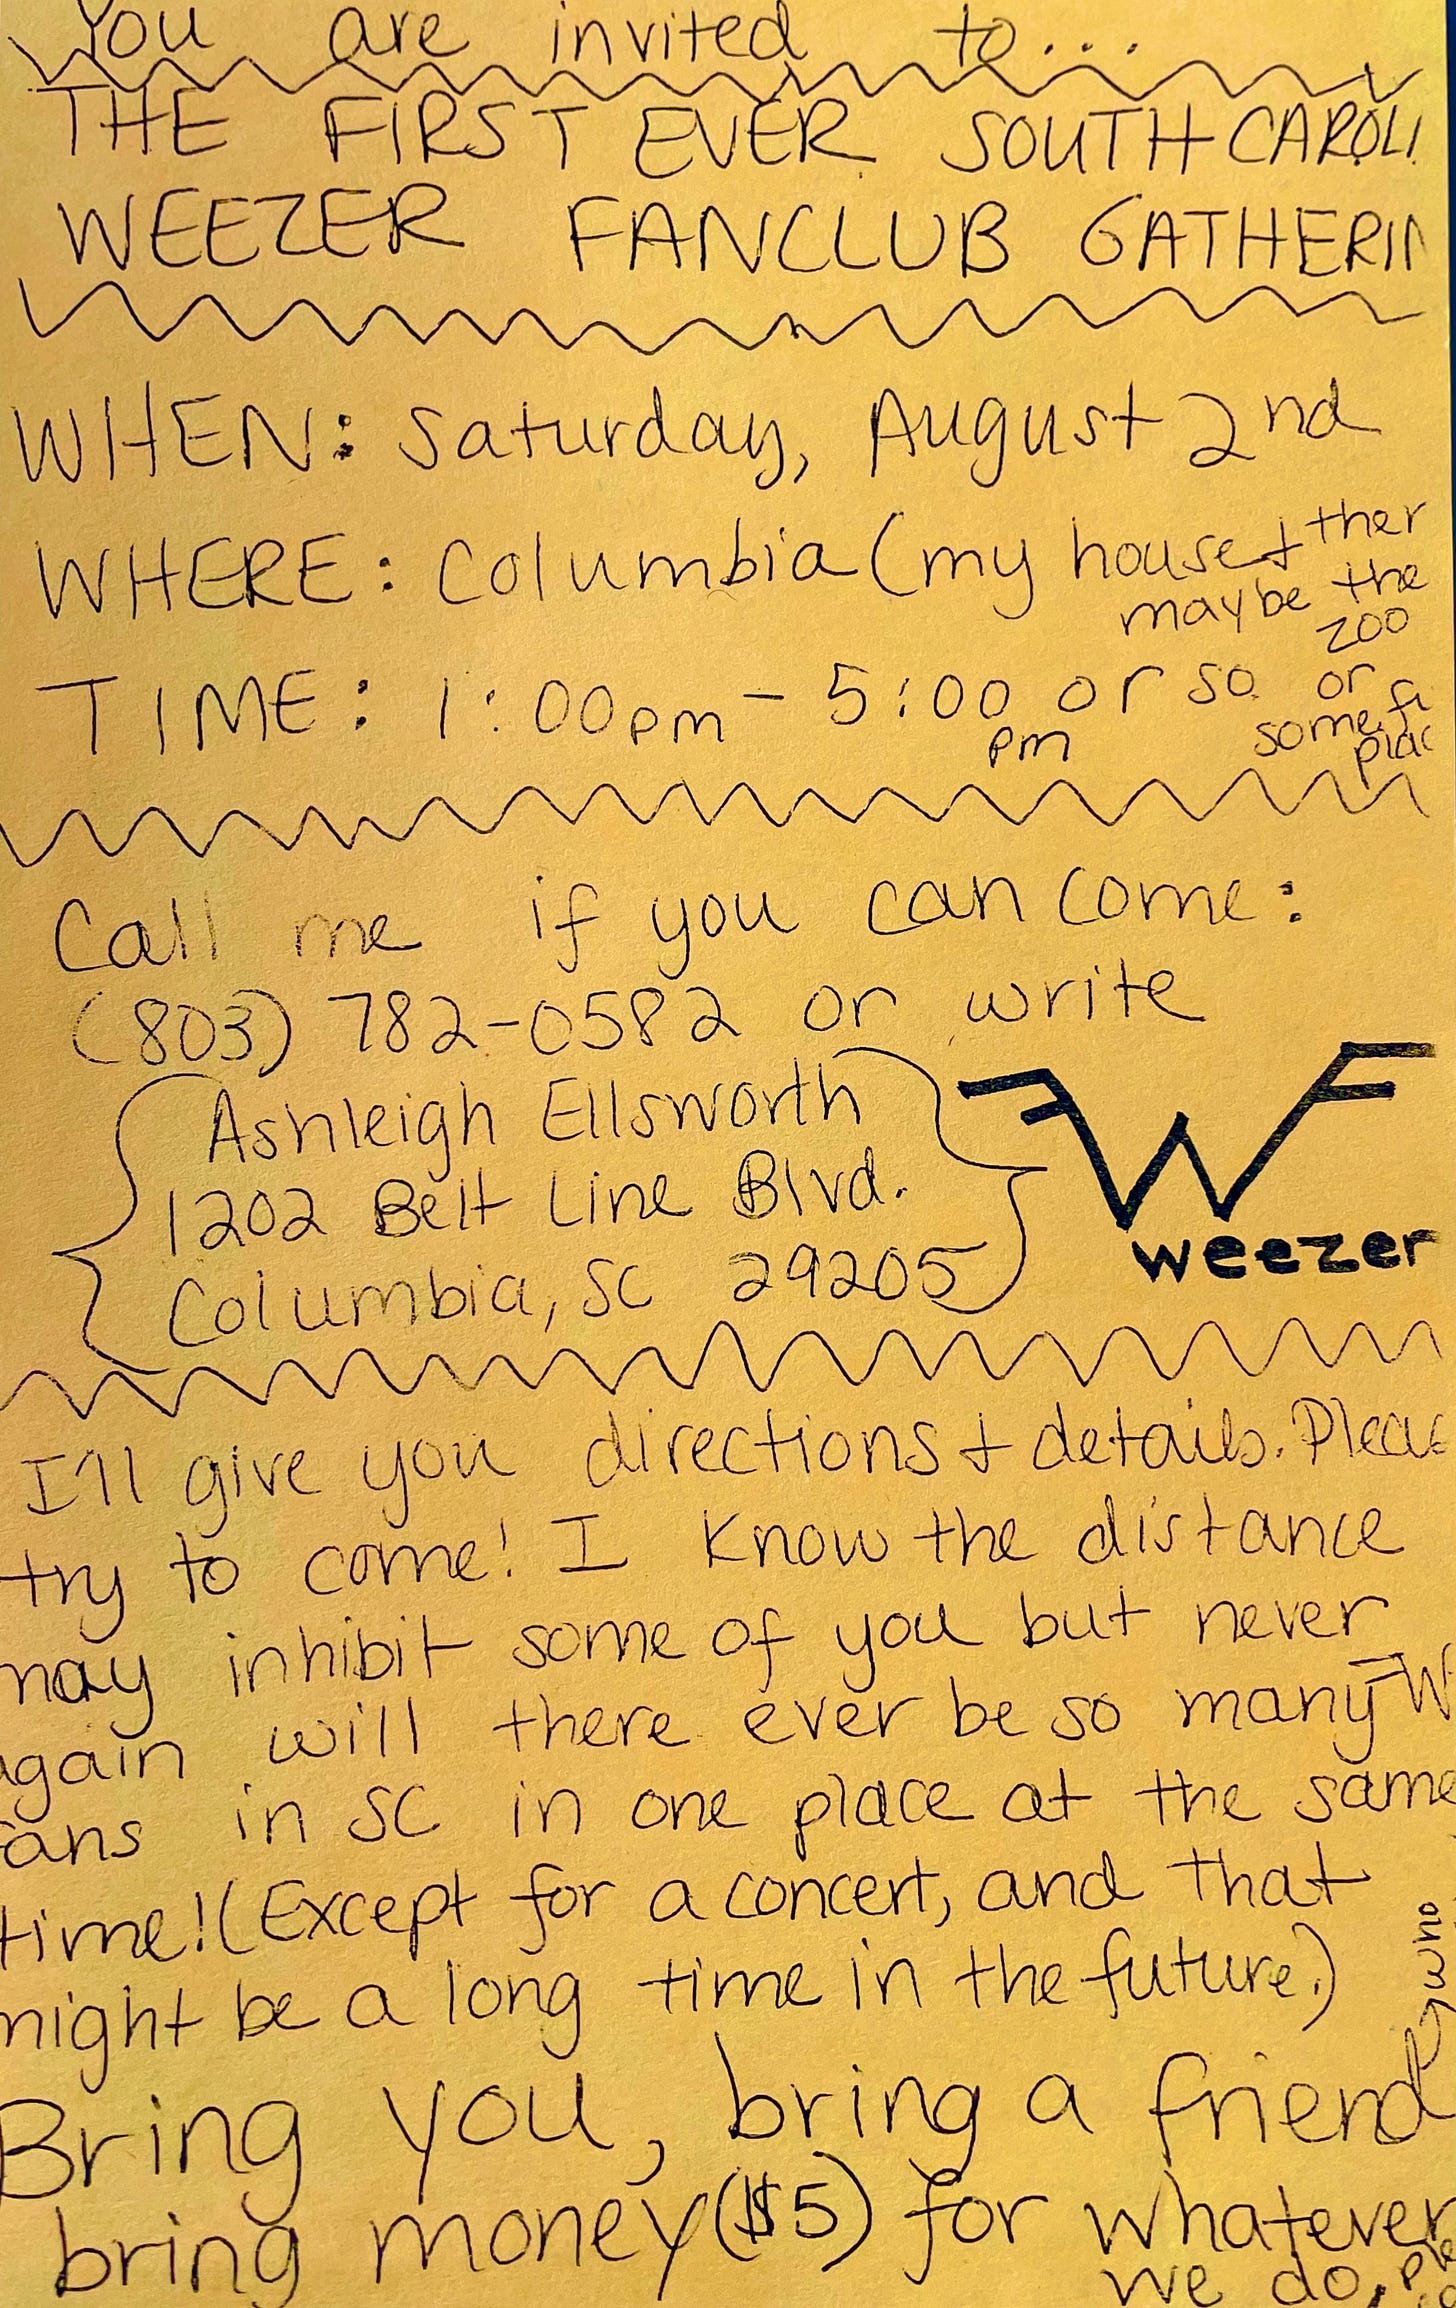 You are invited to...
THE FIRST EVER SOUTH CAROLI
WEEZER FANCLUB GATHERIN
WHEN: Saturday, August 2nd
WHERE: Columbia (my house + ther
maybe the
zoo
TIME: 1:00pm - 5:00 pm or so
or
some
plac
Call me if you can come:
(803) 782-0582 or write
Ashleigh Ellsworth
1202 Belt Line Blvd.
Columbia, SC 29205
W
weezer
I'll give you directions + details. Pleas
try to come! I know the distance
may inhibit some of you but never
again will there ever be so many W
fans in SC in one place at the same
time! (Except for a concert, and that
might be a long time in the future.)
who
Bring you, bring a friend
bring money ($5) for whatever
we do,